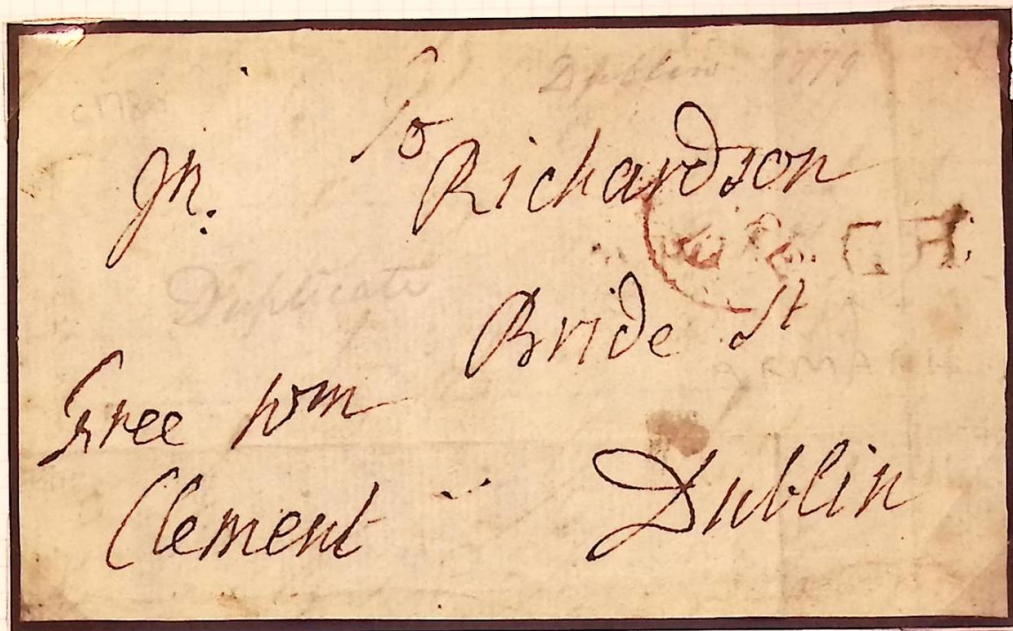 Dublin 1779
c1780
To
Jn. Richardson
Duplicate
Bride St
ARMAGH
Free Wm
Clement
Dublin